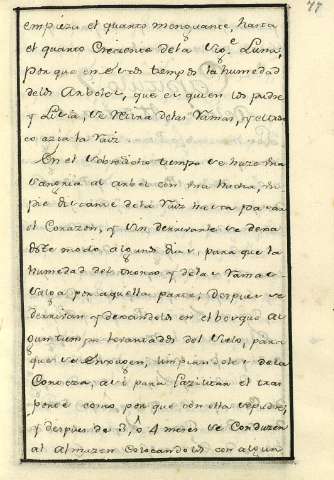 77
empieza el quarto menguante, hasta
el quarto Creciente de la Sig.e Luna,
porque en este tiempo la humedad
delos Arboles, que es quien los pudre
y Livia, se retira delas Ramas, y el
co azia la Raiz
En el sobredicho tiempo se haze una
Sangria al arbol con una hacha, un
pie distante dela Raiz hasta pasar
el Corazon, y sin derrivarle se dexa
deste modo algunos dias, para que la
humedad del tronco y delas Ramas
salga por aquella parte; despues se
derrivan y dexandoles en el bosque al
gun tiempo levantados del Suelo, para
que se enxuguen, limpiandoles dela
Corteza, asi para facilitar el tras
porte como, por que con ella se pudre,
y despues de 3, ò 4 meses se Conduzen
al Almazen Colocandoles con algun